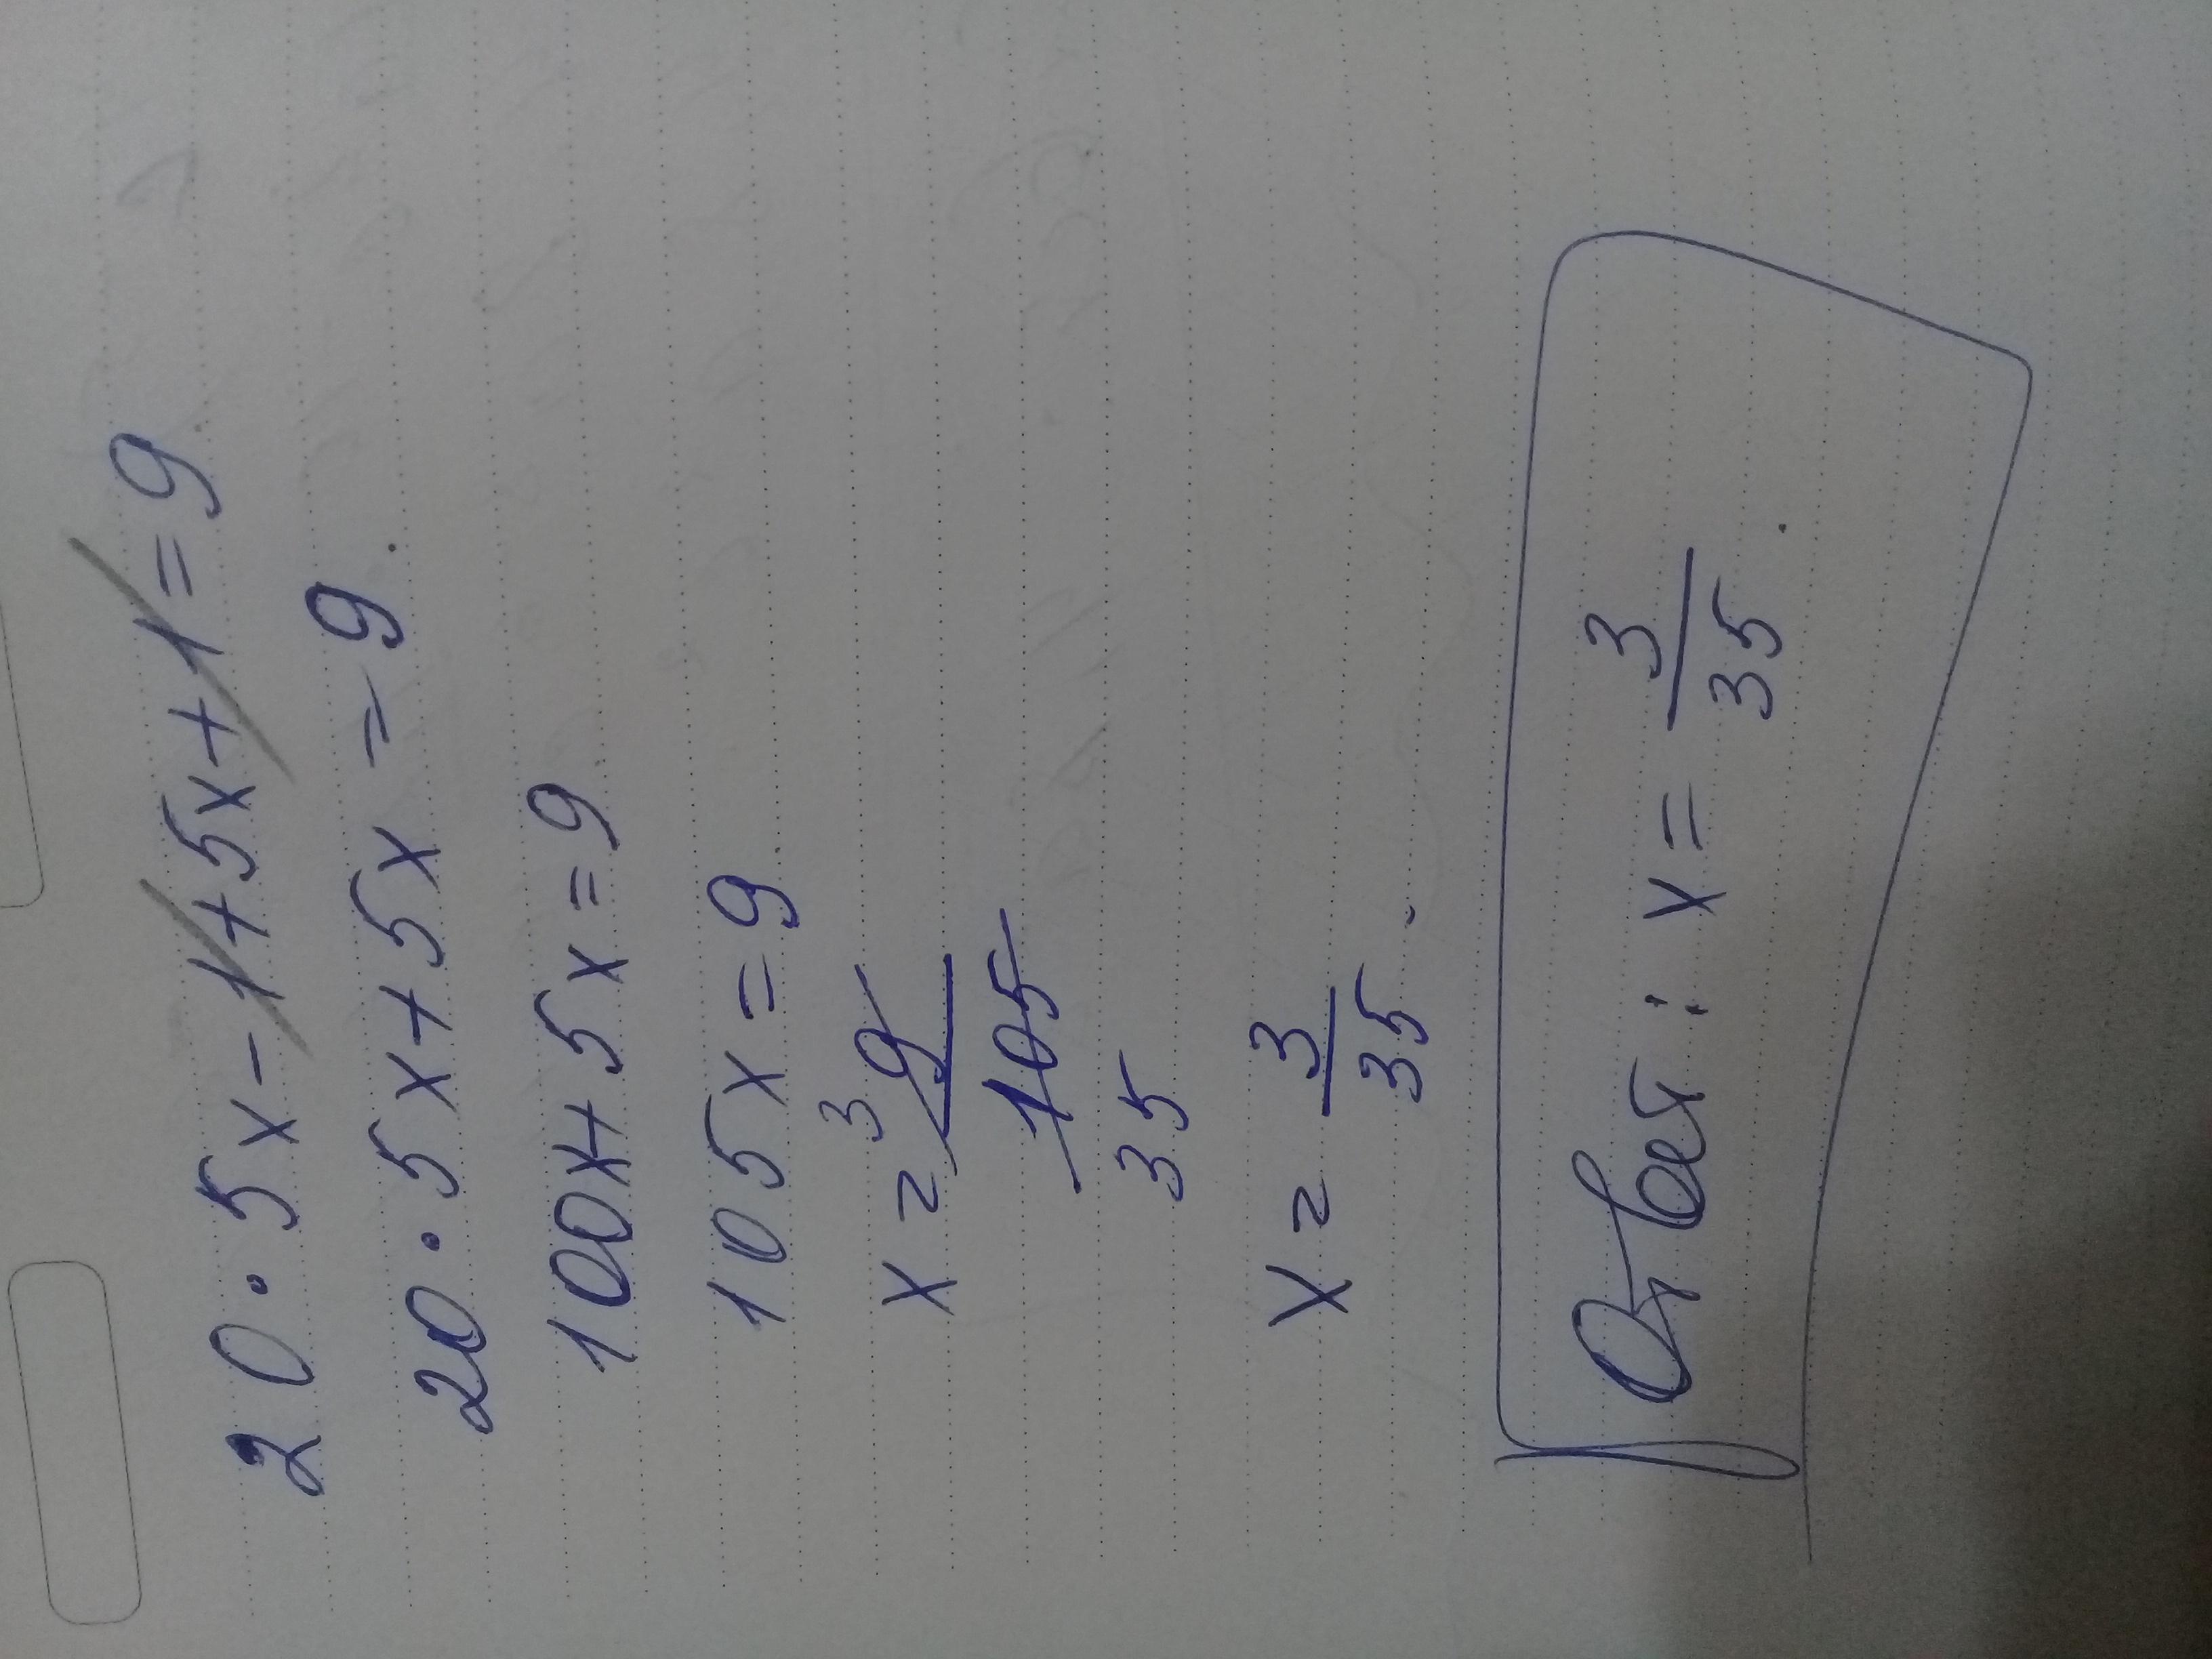 20 · 5x - 1 + 5x + 1 = 9
20 · 5x + 5x = 9
100x + 5x = 9
105x = 9
x = 3 9/105 35
x = 3/35.
Ответ: x = 3/35.